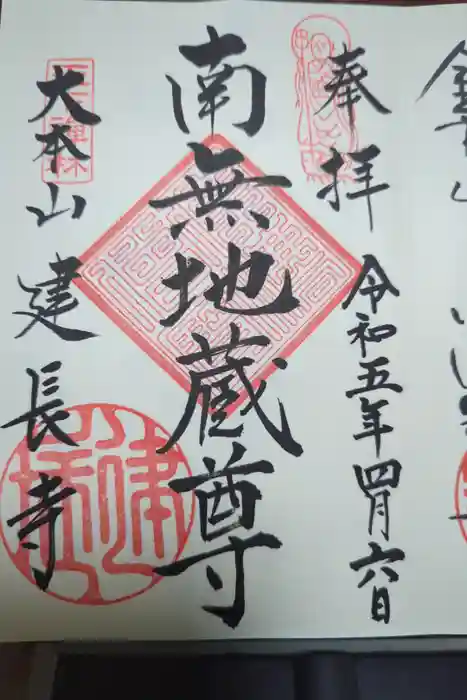 奉拝
令和五年四月六日
南無地蔵尊
大本山建長寺